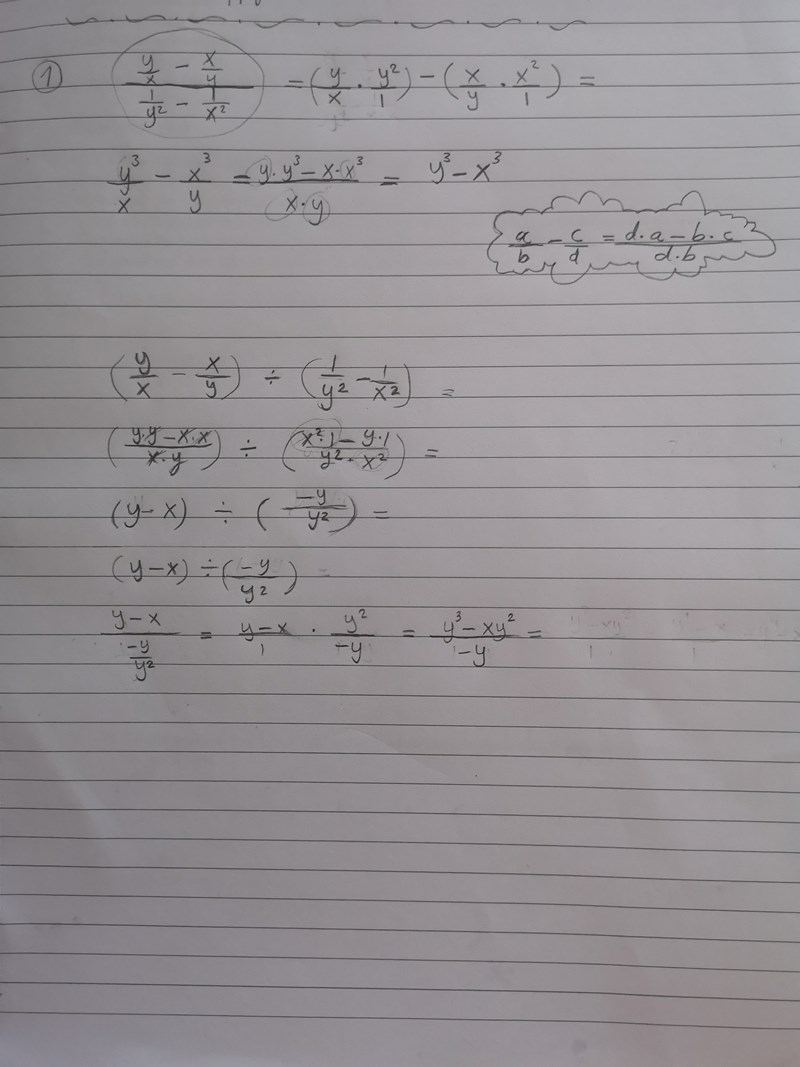 ① (y/x - x/y)/(1/y² - 1/x²) = (y/x · y²/1) - (x/y · x²/1) =
y³/x - x³/y = (y·y³ - x·x³)/(x·y) = y³ - x³
a/b - c/d = (d·a - b·c)/(d·b)
(y/x - x/y) ÷ (1/y² - 1/x²) =
((y·y - x·x)/(x·y)) ÷ ((x²·1 - y·1)/(y²·x²)) =
(y-x) ÷ (-y/y²) =
(y-x) ÷ (-y/y²)
(y-x)/(-y/y²) = (y-x)/1 · y²/-y = (y³ - xy²)/-y =